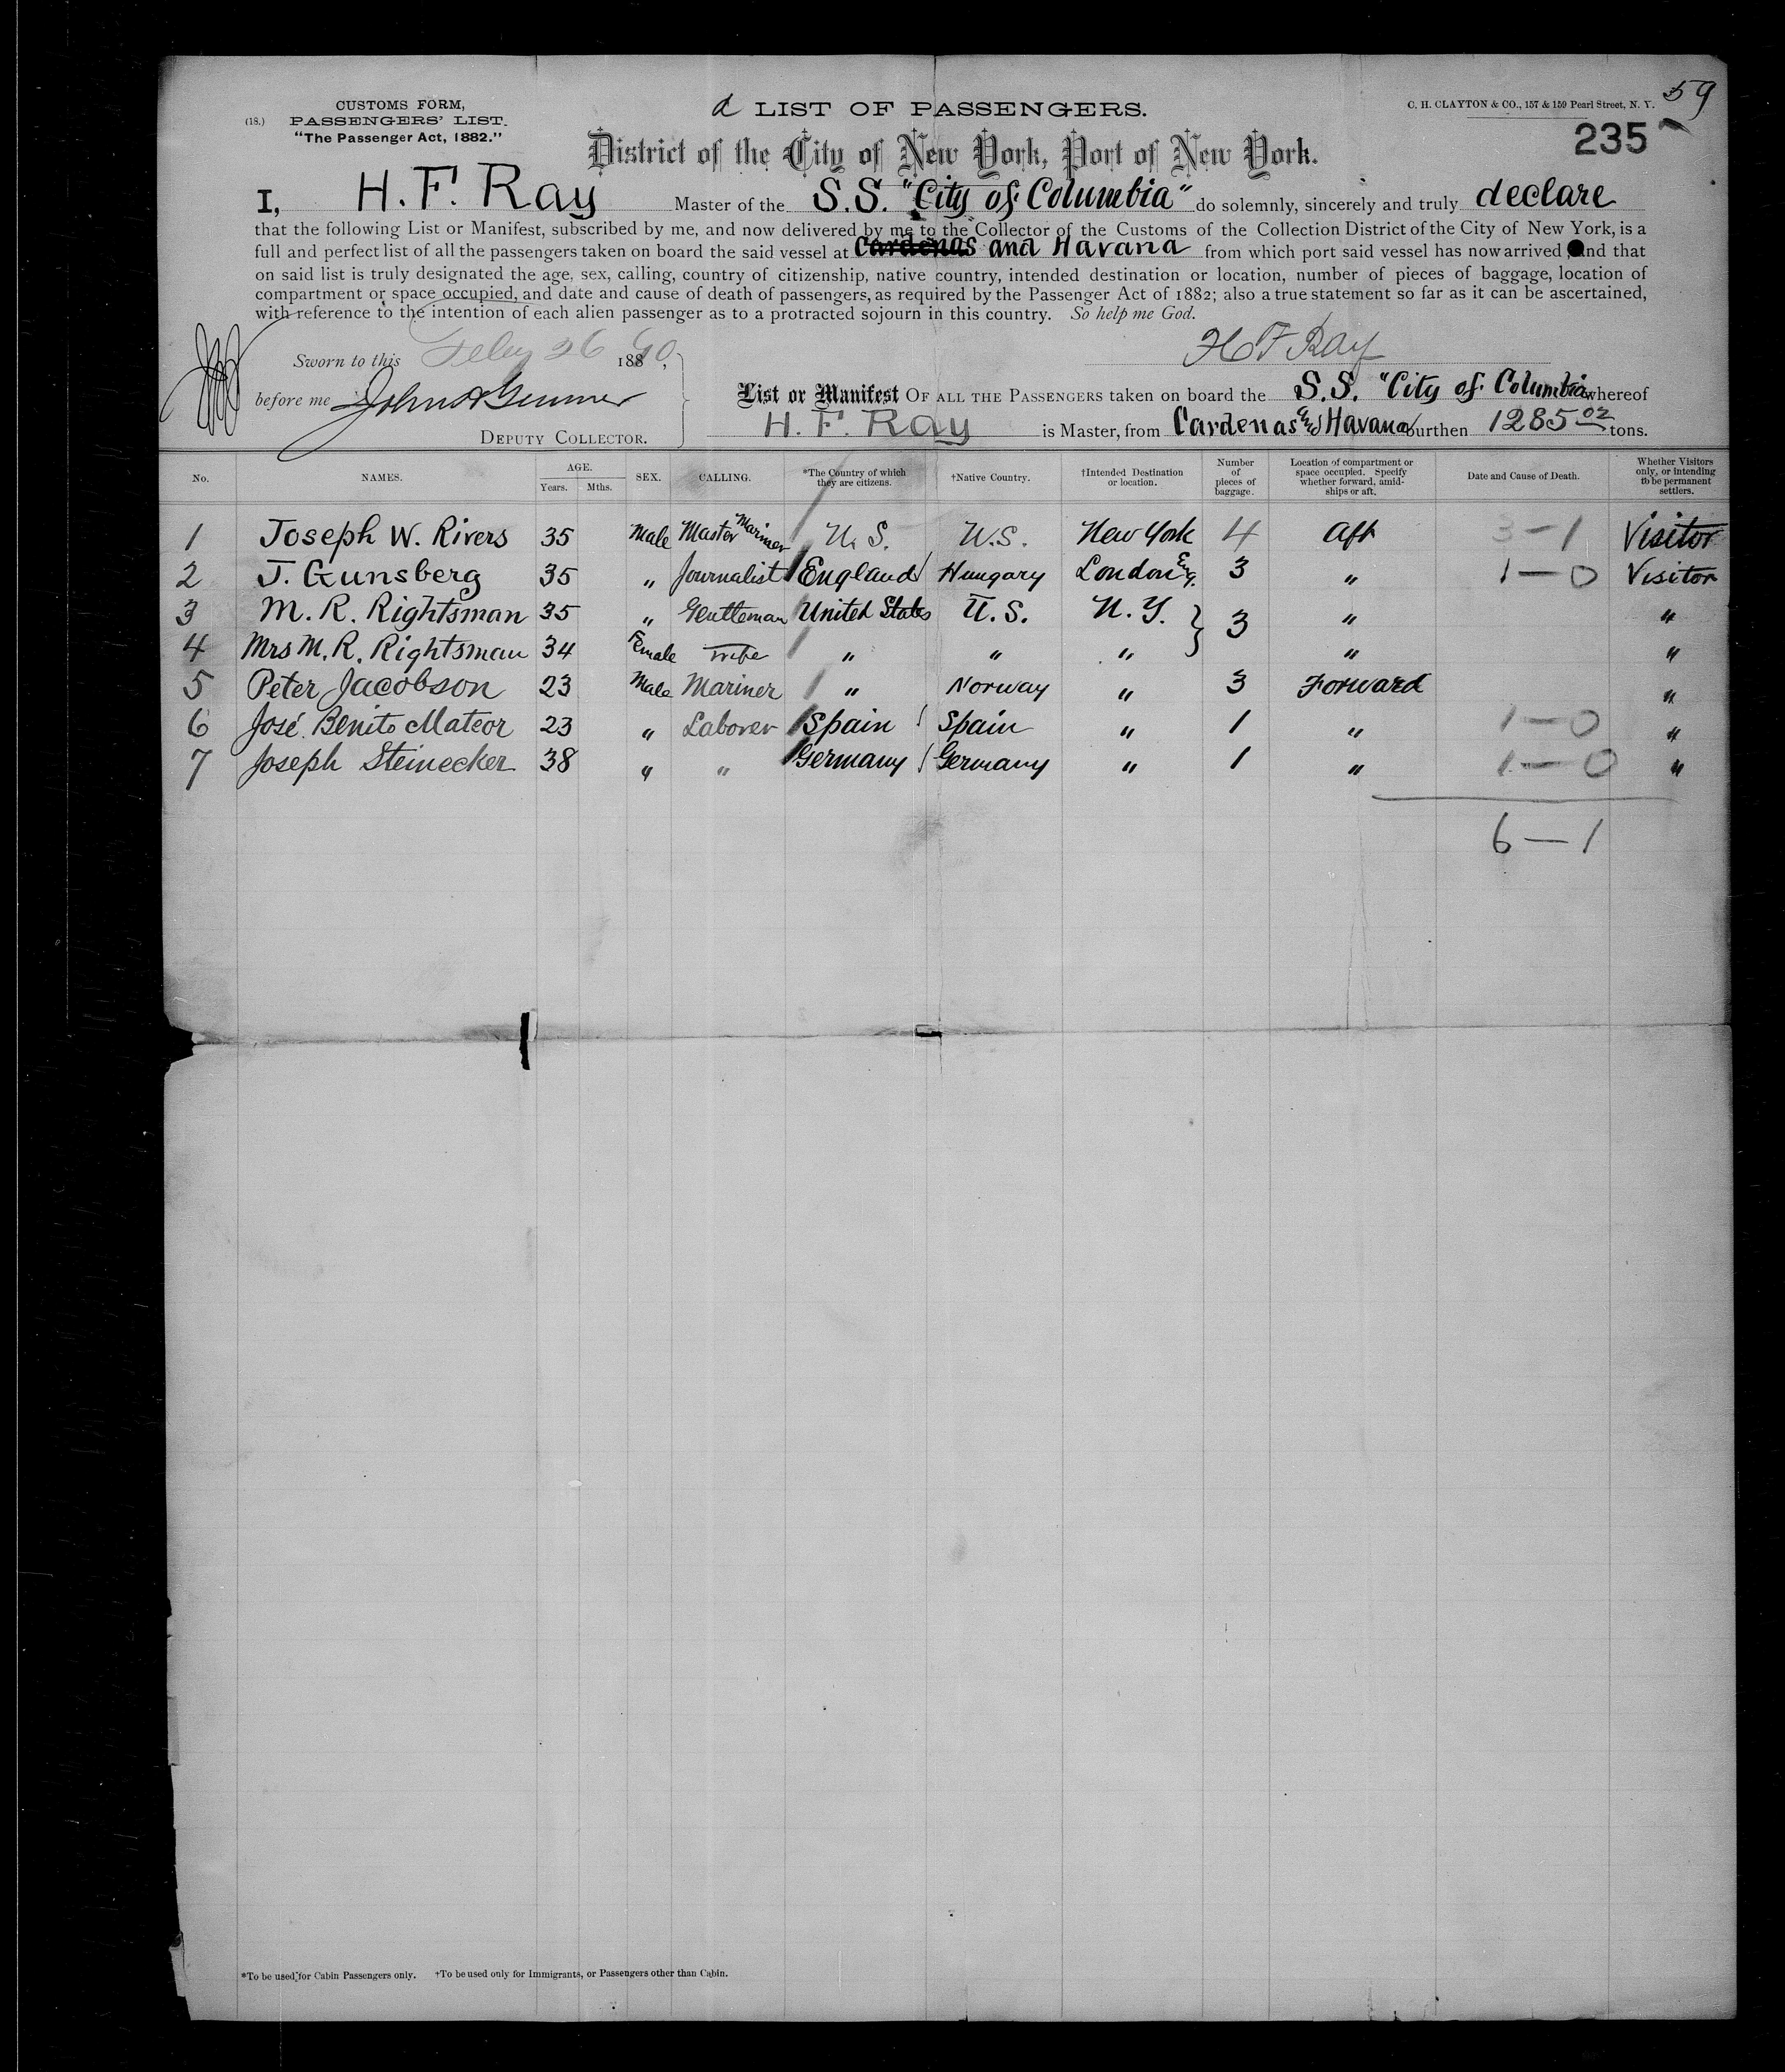 59
CUSTOMS FORM,
(18.) PASSENGERS' LIST.
"The Passenger Act, 1882."
a LIST OF PASSENGERS.
C. H. CLAYTON & CO., 157 & 159 Pearl Street, N. Y.
235
District of the City of New York, Port of New York.
I, H. F. Ray Master of the S.S. "City of Columbia" do solemnly, sincerely and truly declare
that the following List or Manifest, subscribed by me, and now delivered by me to the Collector of the Customs of the Collection District of the City of New York, is a
full and perfect list of all the passengers taken on board the said vessel at Cardenas and Havana from which port said vessel has now arrived and that
on said list is truly designated the age, sex, calling, country of citizenship, native country, intended destination or location, number of pieces of baggage, location of
compartment or space occupied, and date and cause of death of passengers, as required by the Passenger Act of 1882; also a true statement so far as it can be ascertained,
with reference to the intention of each alien passenger as to a protracted sojourn in this country. So help me God.
Sworn to this Feby 26 1890,
H F Ray
before me John
DEPUTY COLLECTOR.
List or Manifest OF ALL THE PASSENGERS taken on board the S.S. "City of Columbia whereof
H. F. Ray is Master, from Cardenas and Havana burthen 1285 02 tons.
No. NAMES. AGE. Years. Mths. SEX. CALLING. *The Country of which they are citizens. †Native Country. †Intended Destination or location. Number of pieces of baggage. Location of compartment or space occupied. Specify whether forward, amid-ships or aft. Date and Cause of Death. Whether Visitors only, or intending to be permanent settlers.
1 Joseph W. Rivers 35 Male Master Mariner U. S. U.S. New York 4 Aft 3-1 Visitor
2 J. Gunsberg 35 " Journalist England Hungary London Eng. 3 " 1-0 Visitor
3 M. R. Rightsman 35 " Gentleman United States U. S. N. Y. } 3 " "
4 Mrs M. R. Rightsman 34 Female Wife " " " " "
5 Peter Jacobson 23 Male Mariner " Norway " 3 Forward "
6 José Benito Mateor 23 " Laborer Spain Spain " 1 " 1-0 "
7 Joseph Steinecker 38 " " Germany Germany " 1 " 1-0 "
6-1
*To be used for Cabin Passengers only. †To be used only for Immigrants, or Passengers other than Cabin.